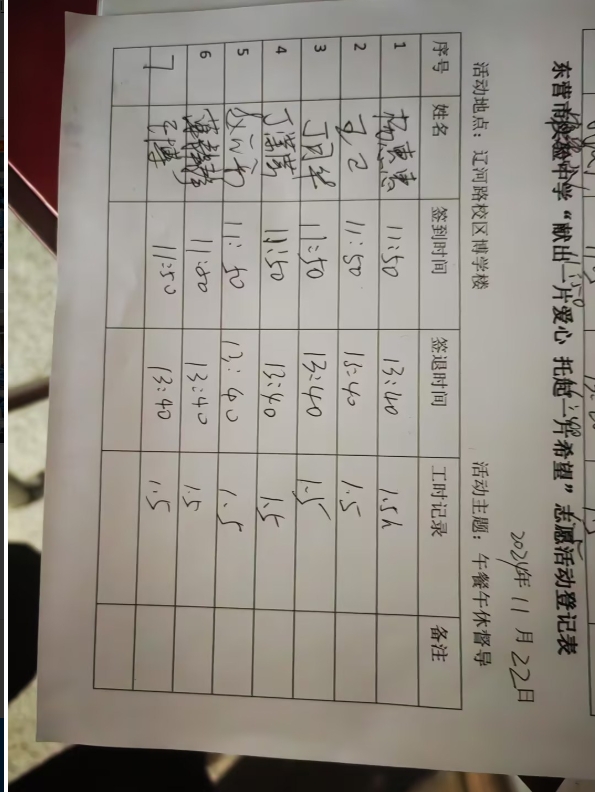 东营市实验中学“献出一片爱心 托起一片希望”志愿活动登记表
2024年11月22日
活动地点：辽河路校区博学楼 活动主题：午餐午休督导
序号 姓名 签到时间 签退时间 工时记录 备注
1 杨惠惠 11:50 13:40 1.5h
2 11:50 13:40 1.5
3 11:50 13:40 1.5
4 11:50 13:40 1.5
5 11:50 13:40 1.5
6 11:50 13:40 1.5
7 王博 11:50 13:40 1.5